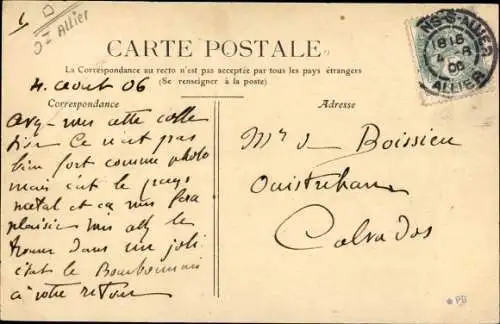 Allier
CARTE POSTALE
La Correspondance au recto n'est pas acceptée par tous les pays étrangers
(Se renseigner à la poste)
NS-S-ALLIER
1815
4 8
06
ALLIER
4. aout 06
Correspondance
Adresse
cette colle
Ce n'est pas
bien fort comme photo
mais c'est le pays
natal et ça vous fera
plaisir
dans un joli
état le Bourbonnais
à votre retour
Mr de Boissieu
Ouistreham
Calvados
PD